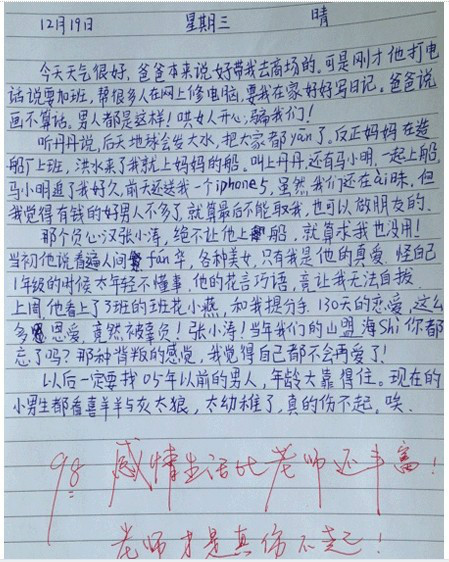 12月19日 星期三 晴
今天天气很好，爸爸本来说好带我去商场的。可是刚才他打电
话说要加班，帮很多人在网上修电脑，要我在家好好写日记。爸爸说
画不算话。男人都是这样！哄女人开心，骗我们！
听丹丹说，后天地球会发大水，把大家都yān了。反正妈妈在造
船厂上班，洪水来了我就上妈妈的船。叫上丹丹，还有马小明，一起上船，
马小明追了我好久，前天还送我一个iphone5，虽然我们还在ài昧，但
我觉得有钱的好男人不多了，就算最后不能取我，也可以做朋友的。
那个负心汉张小涛，绝不让他上船，就算求我也没用！
当初他说看遍人间fán华，各种美女，只有我是他的真爱。怪自己
1年级的时候太年轻不懂事，他的花言巧语，竟让我无法自拔。
上周，他看上了3班的班花小燕，和我提分手。130天的恋爱，这么
多恩爱，竟然被辜负！张小涛！当年我们的山盟海Shi你都
忘了吗？那种背叛的感觉，我觉得自己都不会再爱了！
以后一定要找05年以前的男人，年龄大靠得住。现在的
小男生都看喜羊羊与灰太狼，太幼稚了，真的伤不起，唉。
98 感情生活比老师还丰富！
老师才是真伤不起！